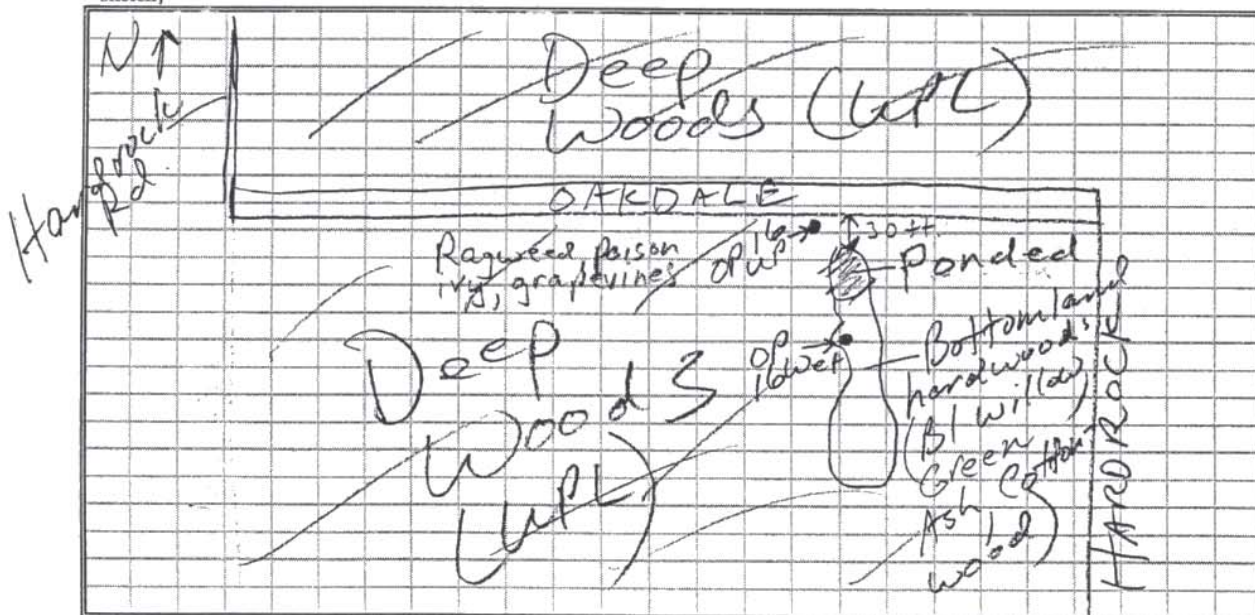 N ↑
Deep
Woods (UPL)
Hardrock
Rd.
OAKDALE
Ragweed, poison
ivy, grapevines
OP UP
16
30 ft.
Ponded
Deep
Woods
(UPL)
OP
16 wet
Bottomland
hardwoods
(Bl Willow
Green
Ash Cotton
wood)
HARDROCK